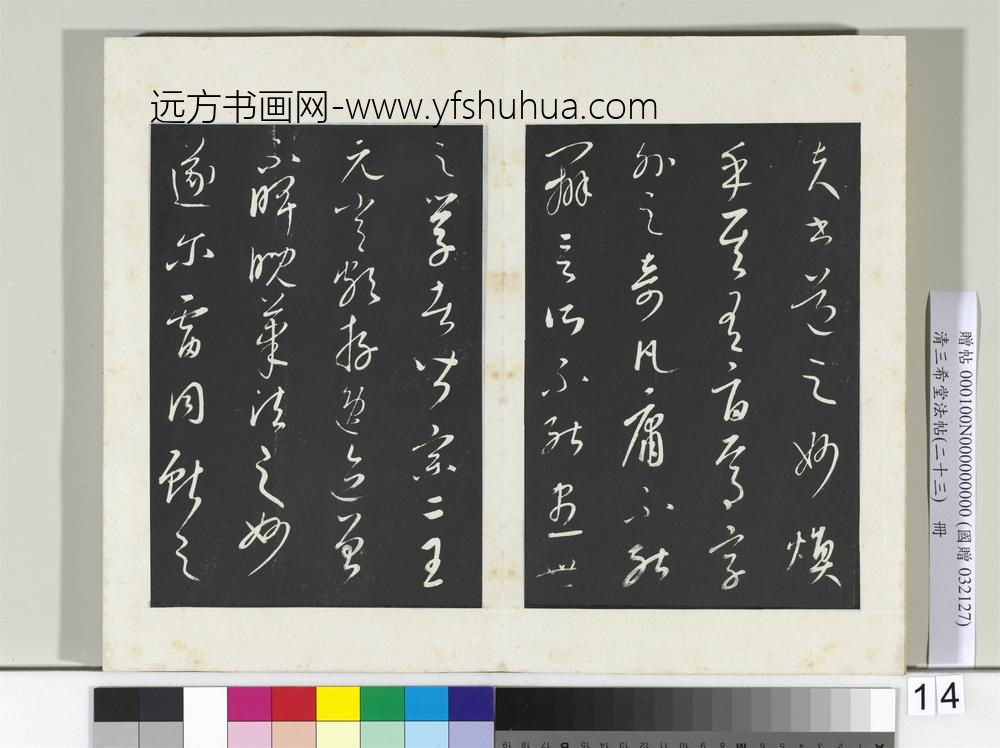 远方书画网-www.yfshuhua.com
夫書道之妙煥
乎其有旨焉字
外之奇凡庸不能
辨言所不能盡世
之學者皆宗二王
元常頗存逸迹曾
不睥睨筆法之妙
遂爾雷同獻之
贈帖 000100N000000000 (國贈 032127)
清三希堂法帖(二十三) 冊
14